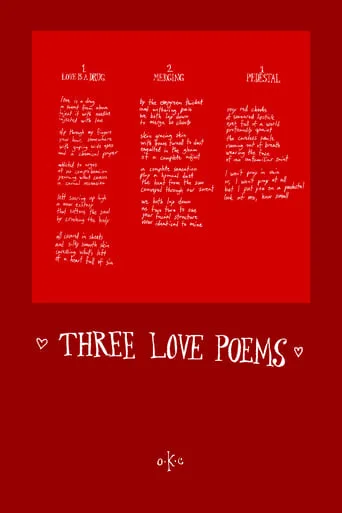 1.
LOVE IS A DRUG
love is a drug
a sweet from above
inject it with needles
injected with love
slip through my fingers
your hair, somewhere
with gaping wide eyes
and a chemical prayer
addicted to urges
of no comprehension
of a sacred recession
left soaring up high
a new ecstasy
that softens the soul
by crushing the body
all covered in sheets
and silky smooth skin
spreading what's left
of a heart full of sin
2.
MERGING
by the evergreen thicket
and withering pain
we both lay down
to merge
skin grazing skin
with bones turned to dust
engulfed in the gloom
of a complete
a complete sensation
play a dust
the heat from the sun
conveyed through our sweat
we both lay down
as face turn to see
your facial structure
now identical to mine
3.
PEDESTAL
your red cheeks
of smeared lipstick
eyes full of a world
the careless saints
running out of breath
wearing the
of an unfamiliar saint
I won't pray in vain
or I won't pray at all
but I put you on a pedestal
look at me, how small
♡ THREE LOVE POEMS ♡
o.K.c